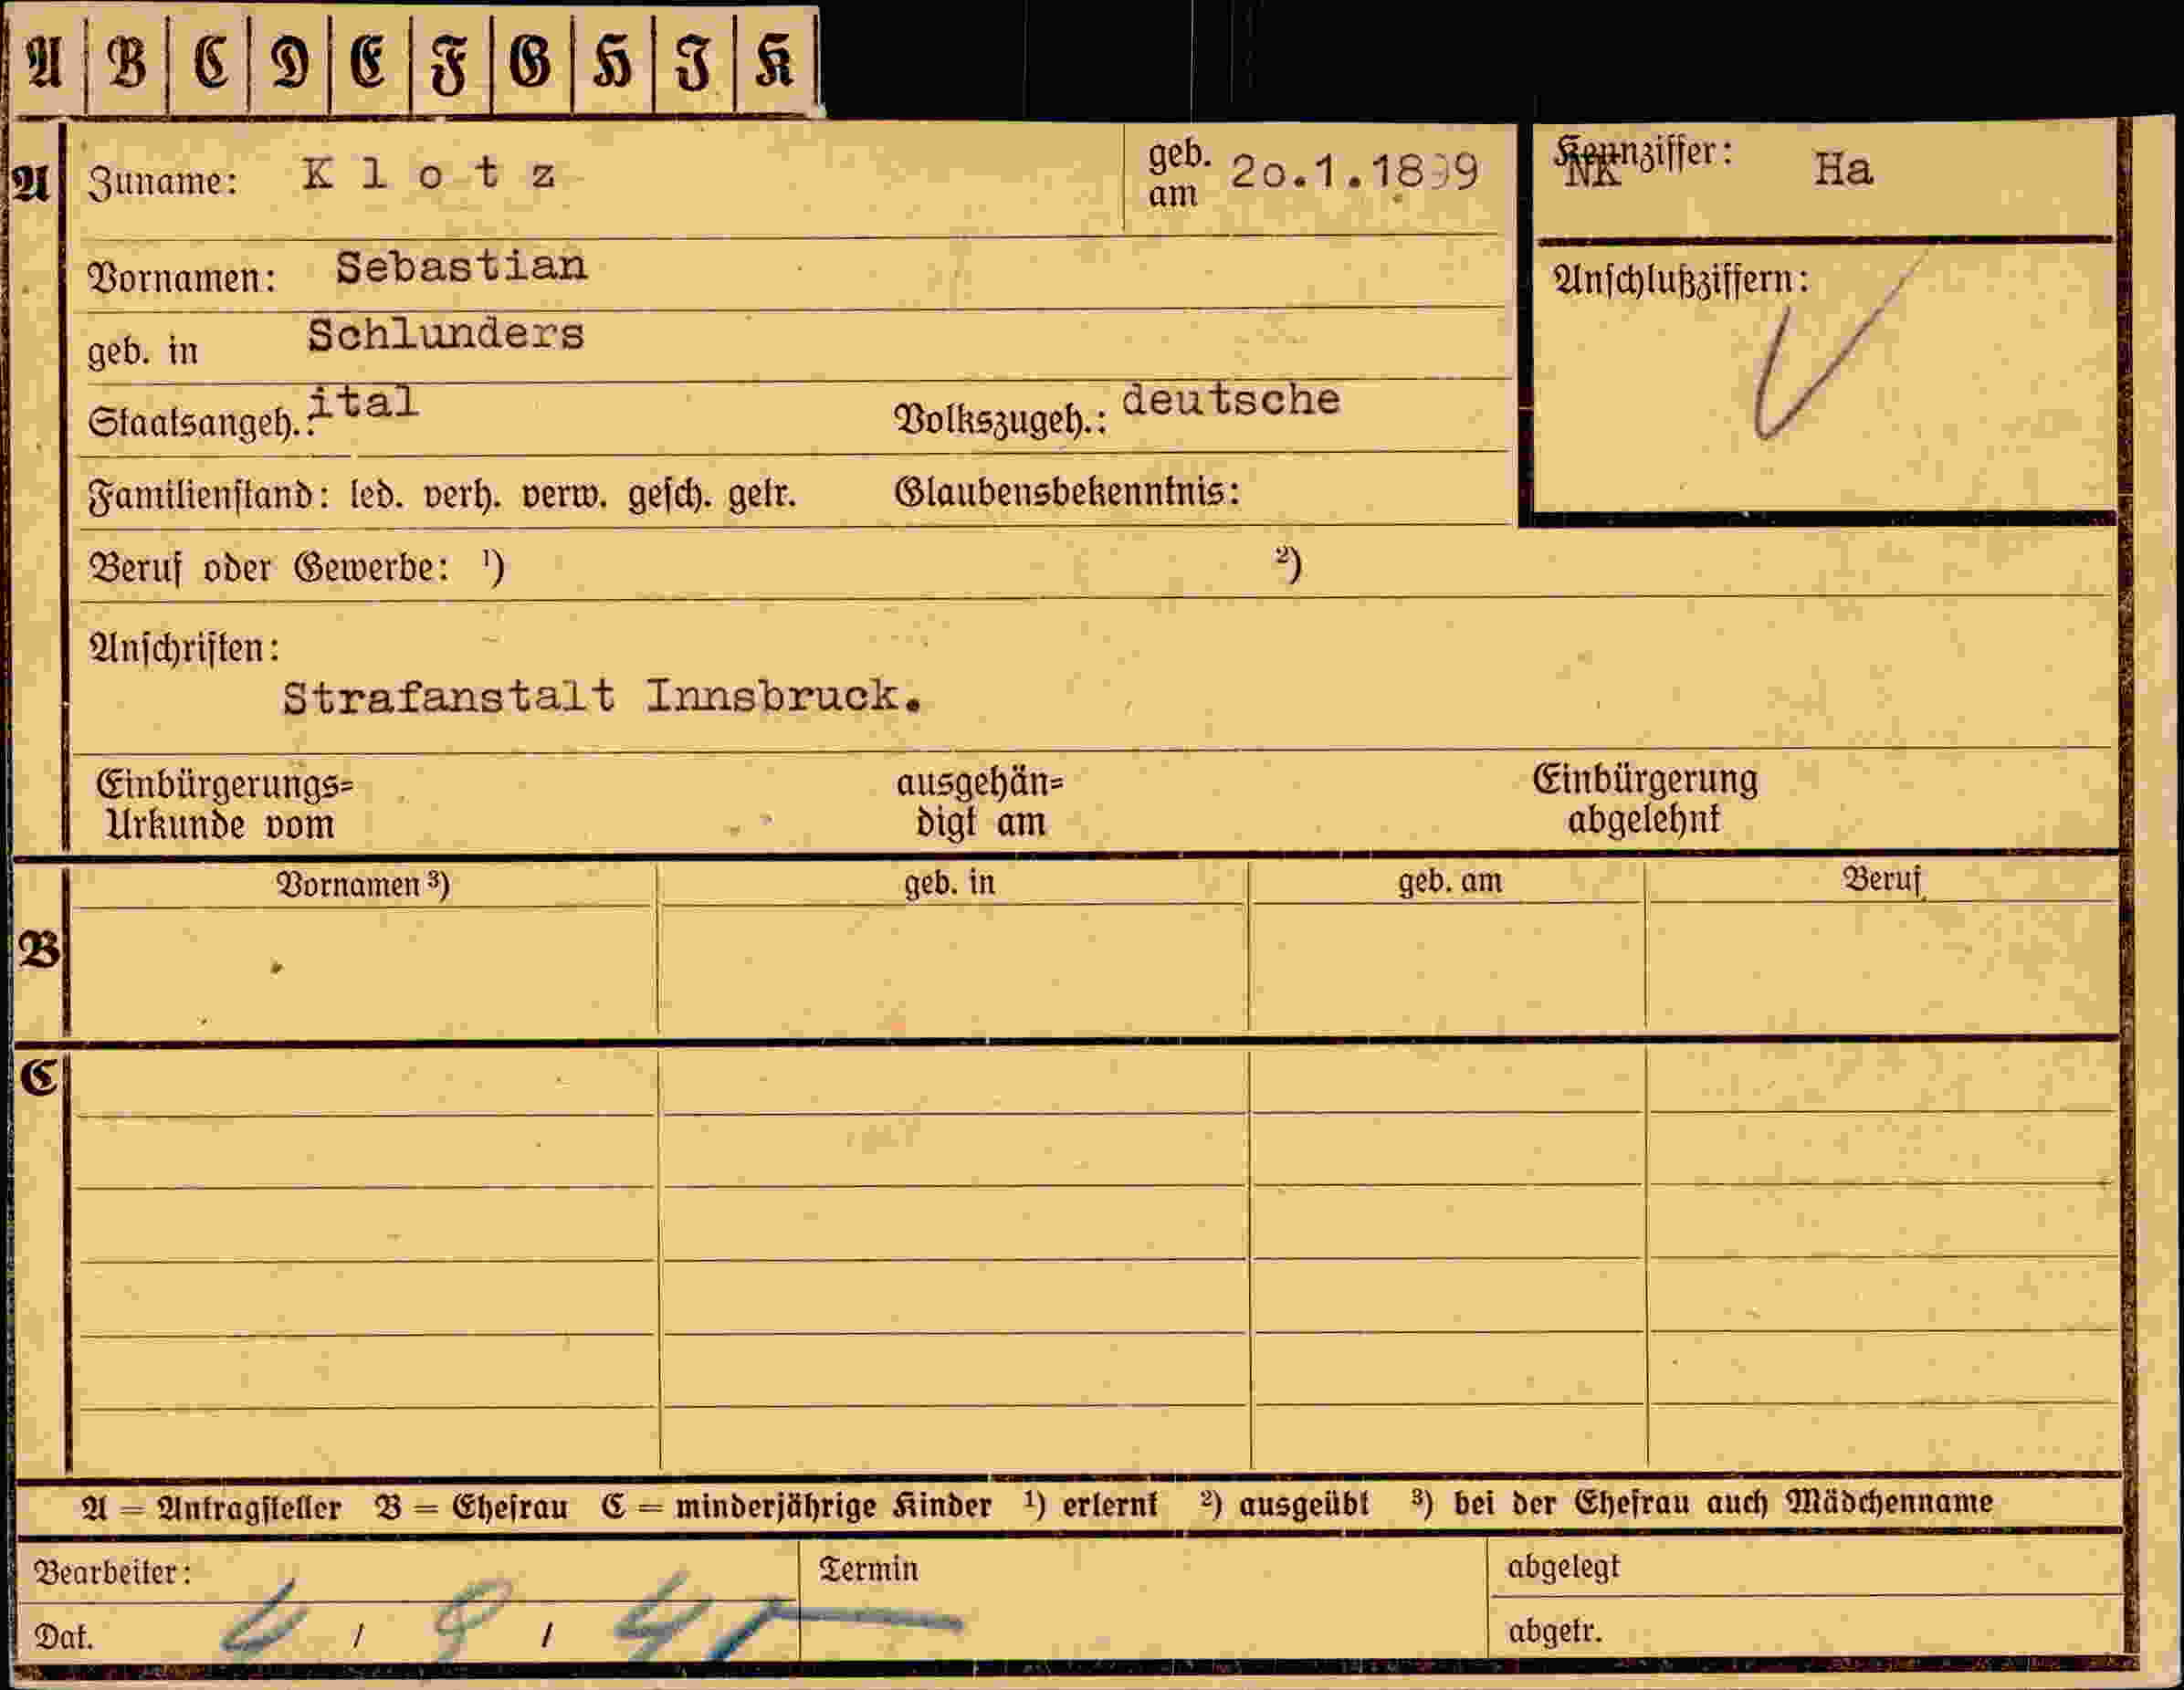 A B C D E F G H J K
A Zuname: Klotz geb. am 20.1.1899 Kennziffer: NK Ha
Vornamen: Sebastian Anschlußziffern:
geb. in Schlunders
Staatsangeh.: ital Volkszugeh.: deutsche
Familienstand: led. verh. verw. gesch. getr. Glaubensbekenntnis:
Beruf oder Gewerbe: ¹) ²)
Anschriften:
Strafanstalt Innsbruck.
Einbürgerungs= ausgehän= Einbürgerung
Urkunde vom digt am abgelehnt
Vornamen ³) geb. in geb. am Beruf
B
C
A = Antragsteller B = Ehefrau C = minderjährige Kinder ¹) erlernt ²) ausgeübt ³) bei der Ehefrau auch Mädchenname
Bearbeiter: Termin abgelegt
Dat. 4 / 8 / abgetr.